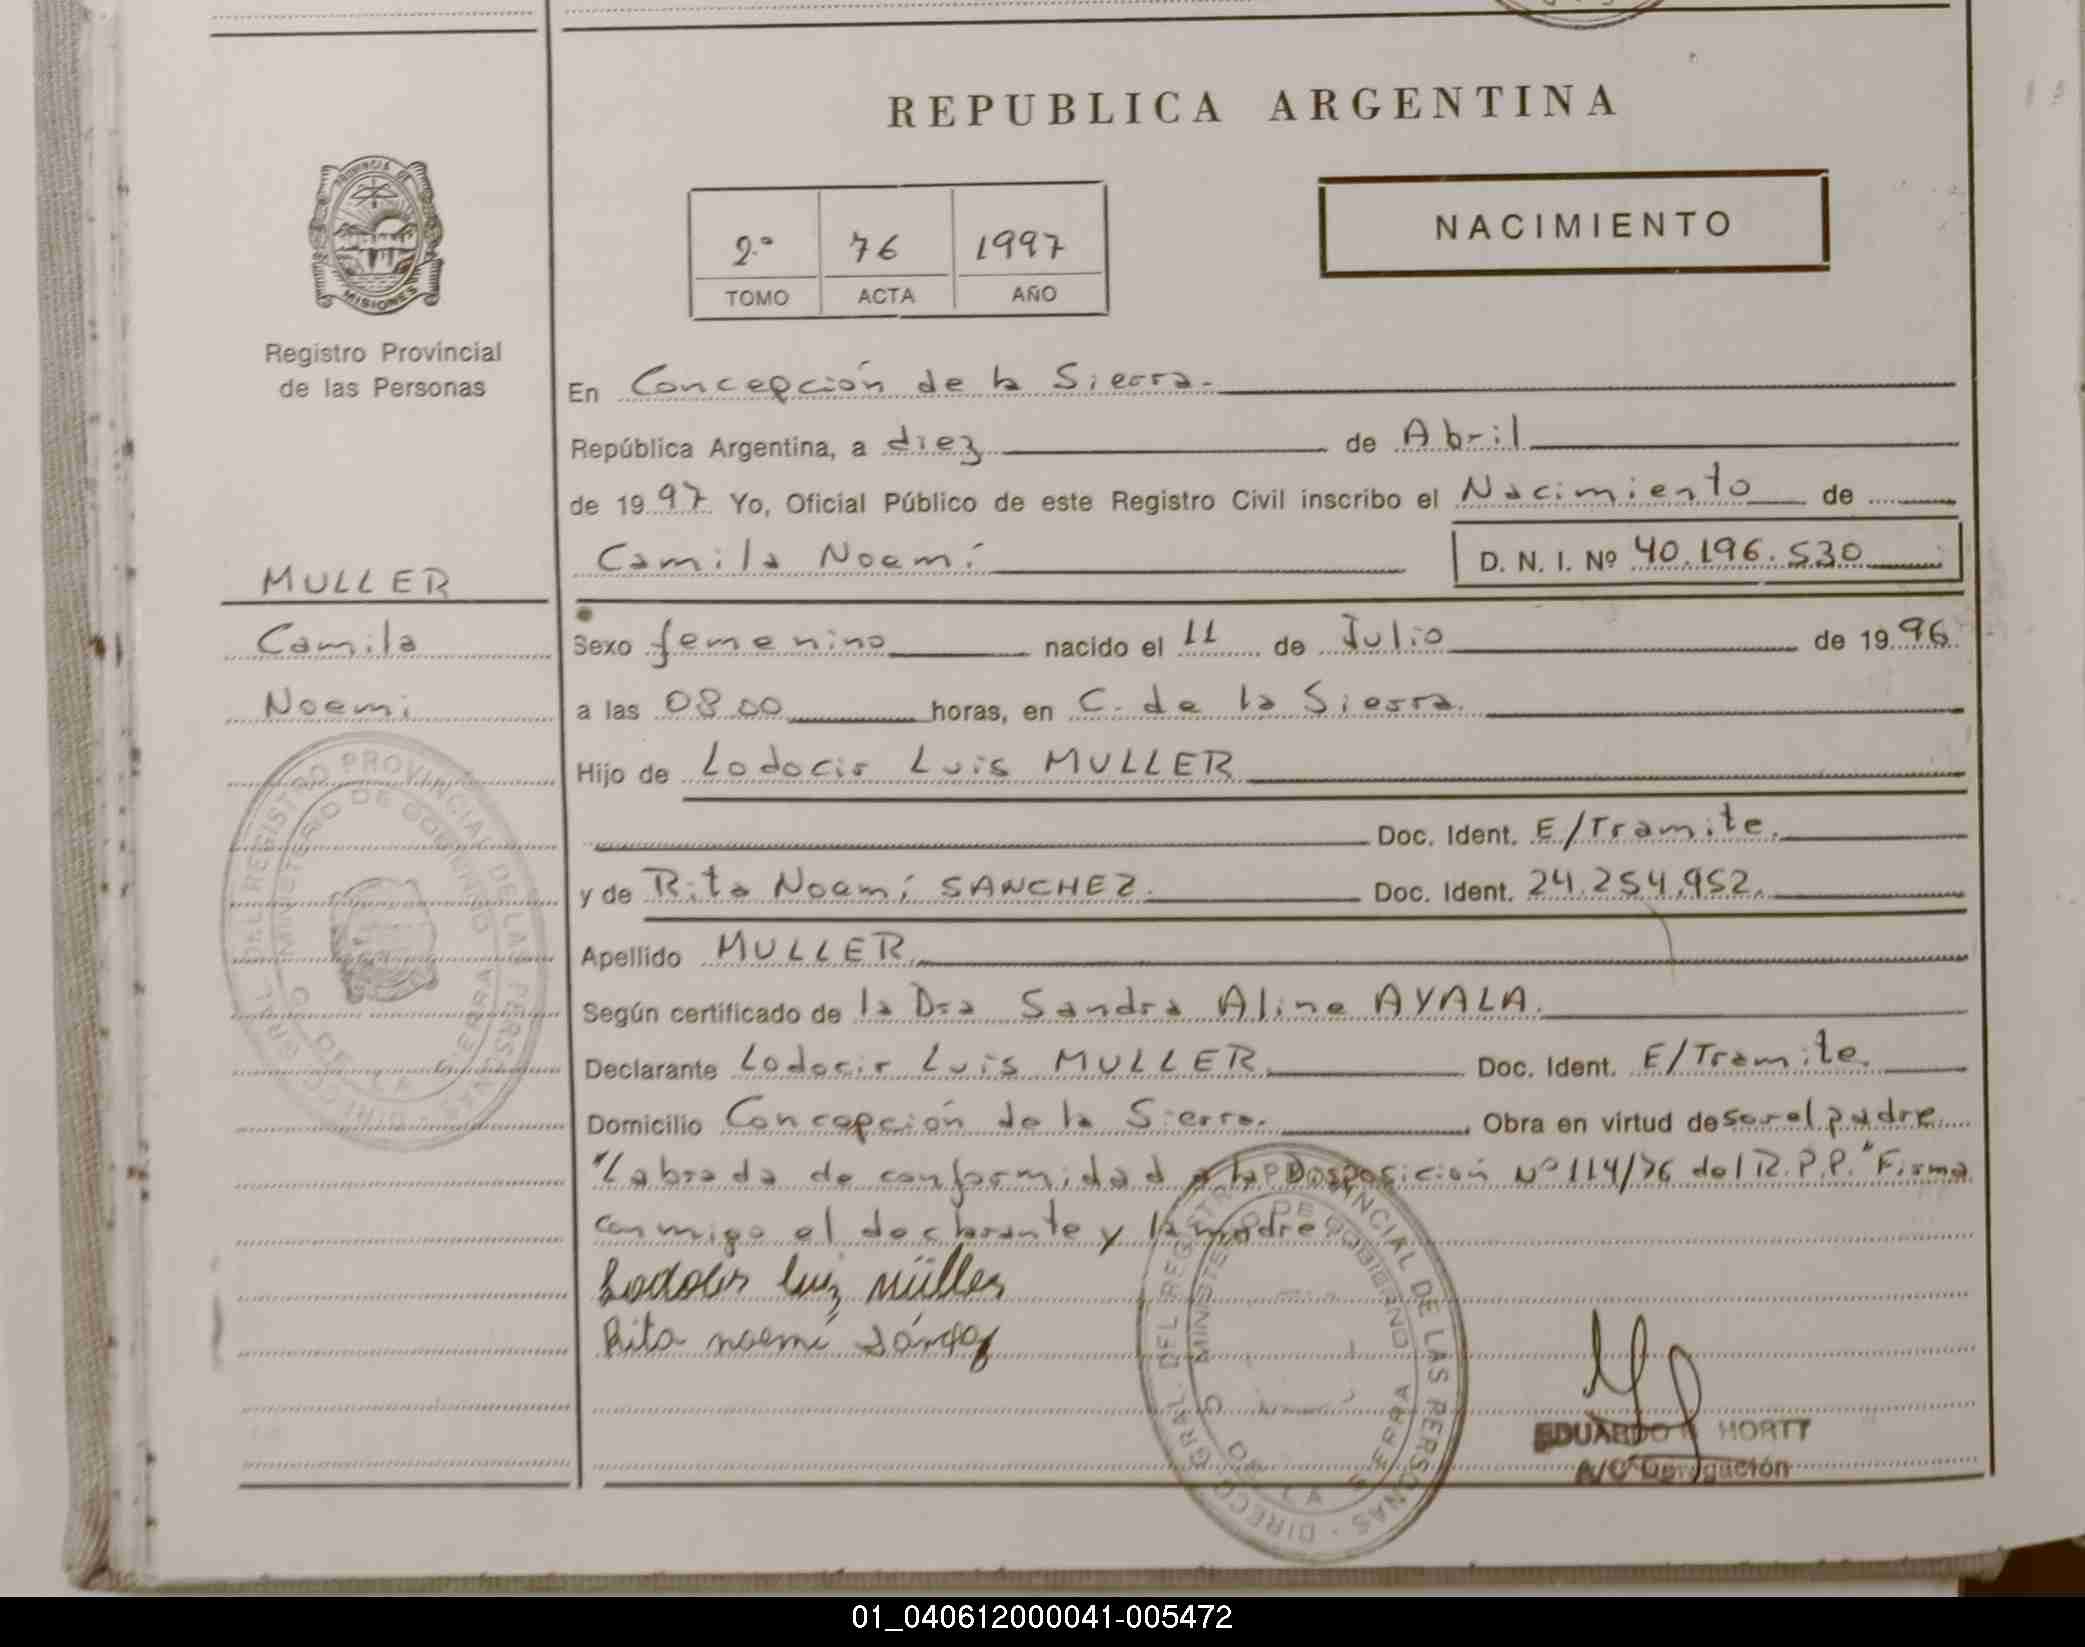 REPUBLICA ARGENTINA
PROVINCIA DE
MISIONES
Registro Provincial
de las Personas
2º 76 1997
TOMO ACTA AÑO
NACIMIENTO
En Concepción de la Sierra.
República Argentina, a diez de Abril
de 1997 Yo, Oficial Público de este Registro Civil inscribo el Nacimiento de
Camila Noemí D. N. I. Nº 40.196.530
MULLER
Camila
Noemi
Sexo femenino nacido el 11 de Julio de 1996
a las 08.00 horas, en C. de la Sierra.
Hijo de Lodocir Luis MULLER
Doc. Ident. E/Tramite.
y de Rita Noemí SANCHEZ. Doc. Ident. 24.254.952.
Apellido MULLER
Según certificado de la Dra Sandra Aline AYALA.
Declarante Lodocir Luis MULLER Doc. Ident. E/Tramite.
Domicilio Concepción de la Sierra. Obra en virtud de ser el padre
"Labrada de conformidad a la Disposición Nº 114/76 del R.P.P." Firma
conmigo el declarante y la madre
luiz Müller
Rita noemí
DIREC. GRAL. DEL REGISTRO PROVINCIAL DE LAS PERSONAS
MINISTERIO DE GOBIERNO
C. DE LA SIERRA
DIREC. GRAL. DEL REGISTRO PROVINCIAL DE LAS PERSONAS
MINISTERIO DE GOBIERNO
C. DE LA SIERRA
EDUARDO HORTT
A/C Delegación
01_040612000041-005472